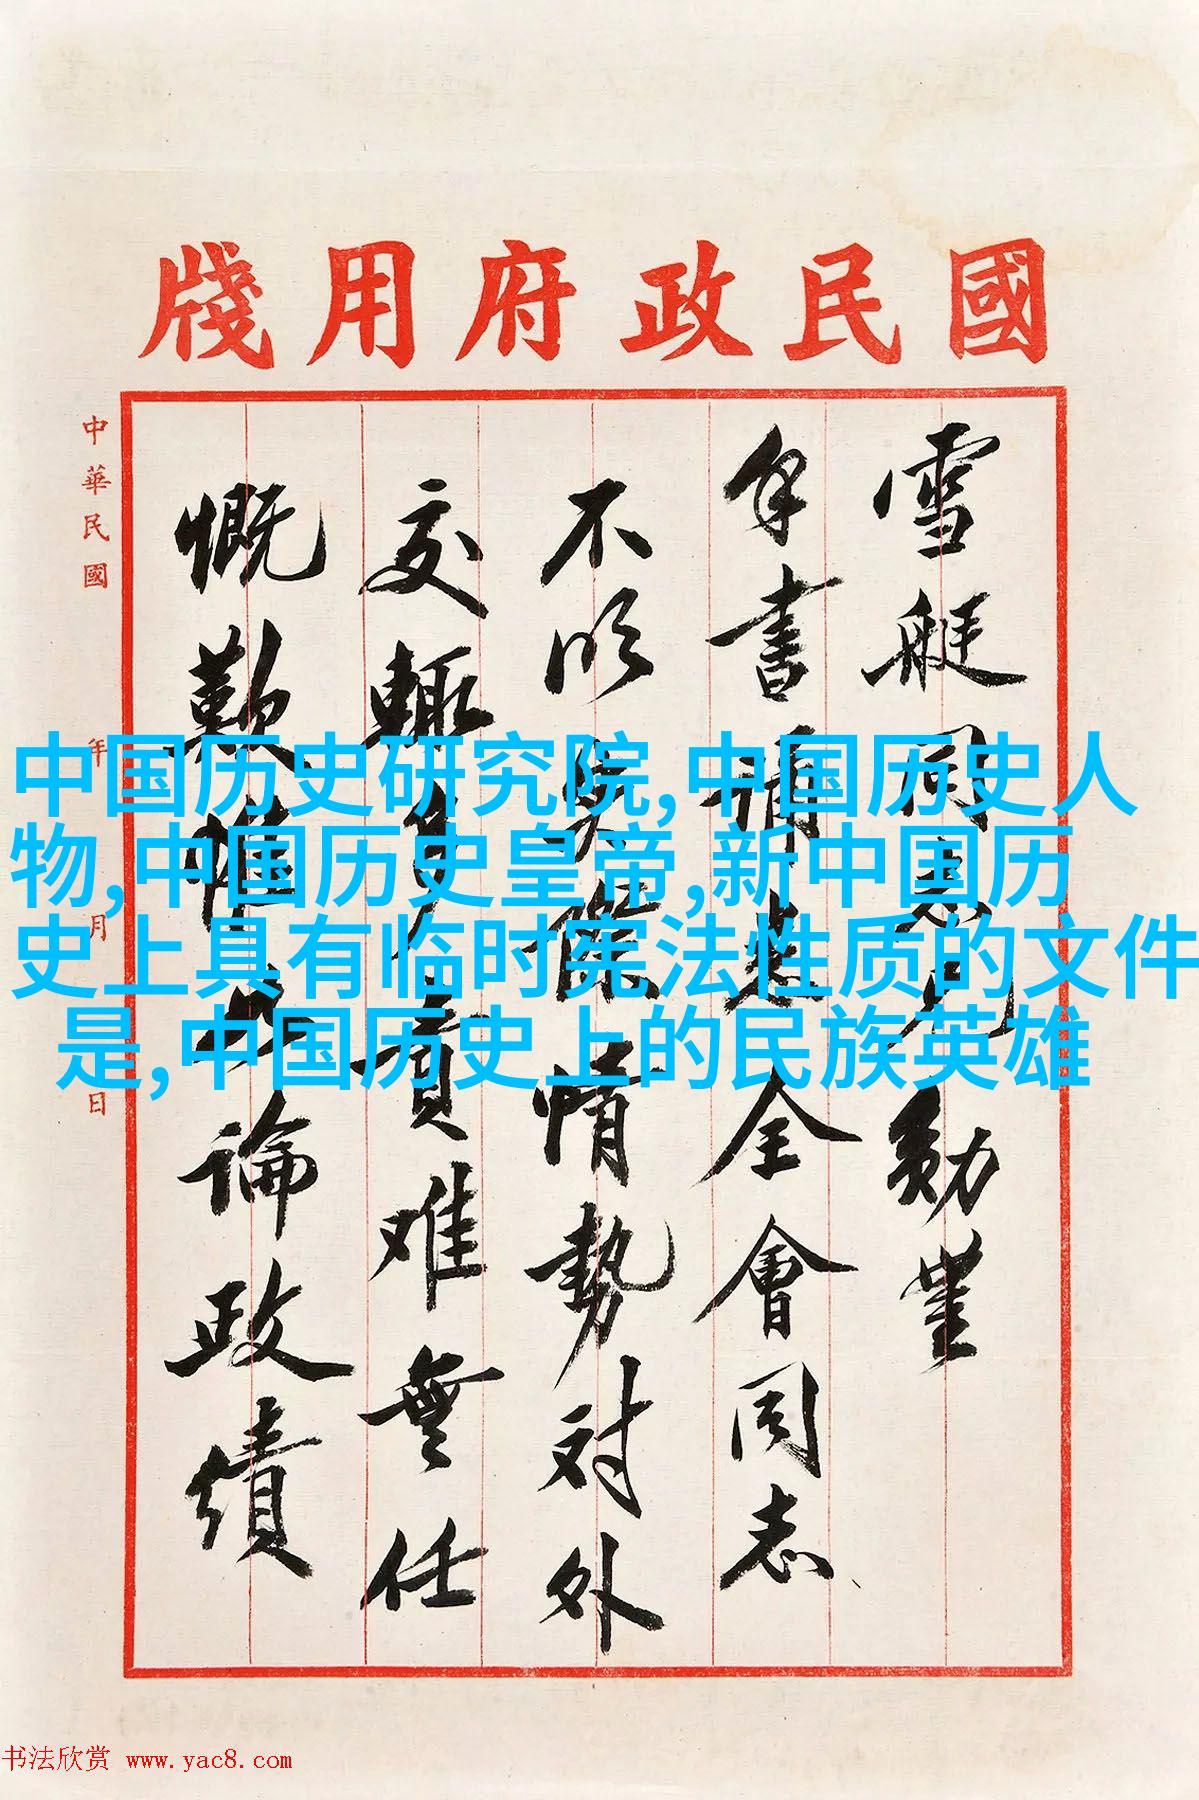 國民政府用牋
雪艇同志兄勛
手書誦悉全會同志
不明實際情勢対外
交輒多責难無任
慨歎惟論政績
中華民國 年 月 日
中国历史研究院,中国历史人
物,中国历史皇帝,新中国历
史上具有临时宪法性质的文件
是,中国历史上的民族英雄
书法欣赏 www.yac8.com